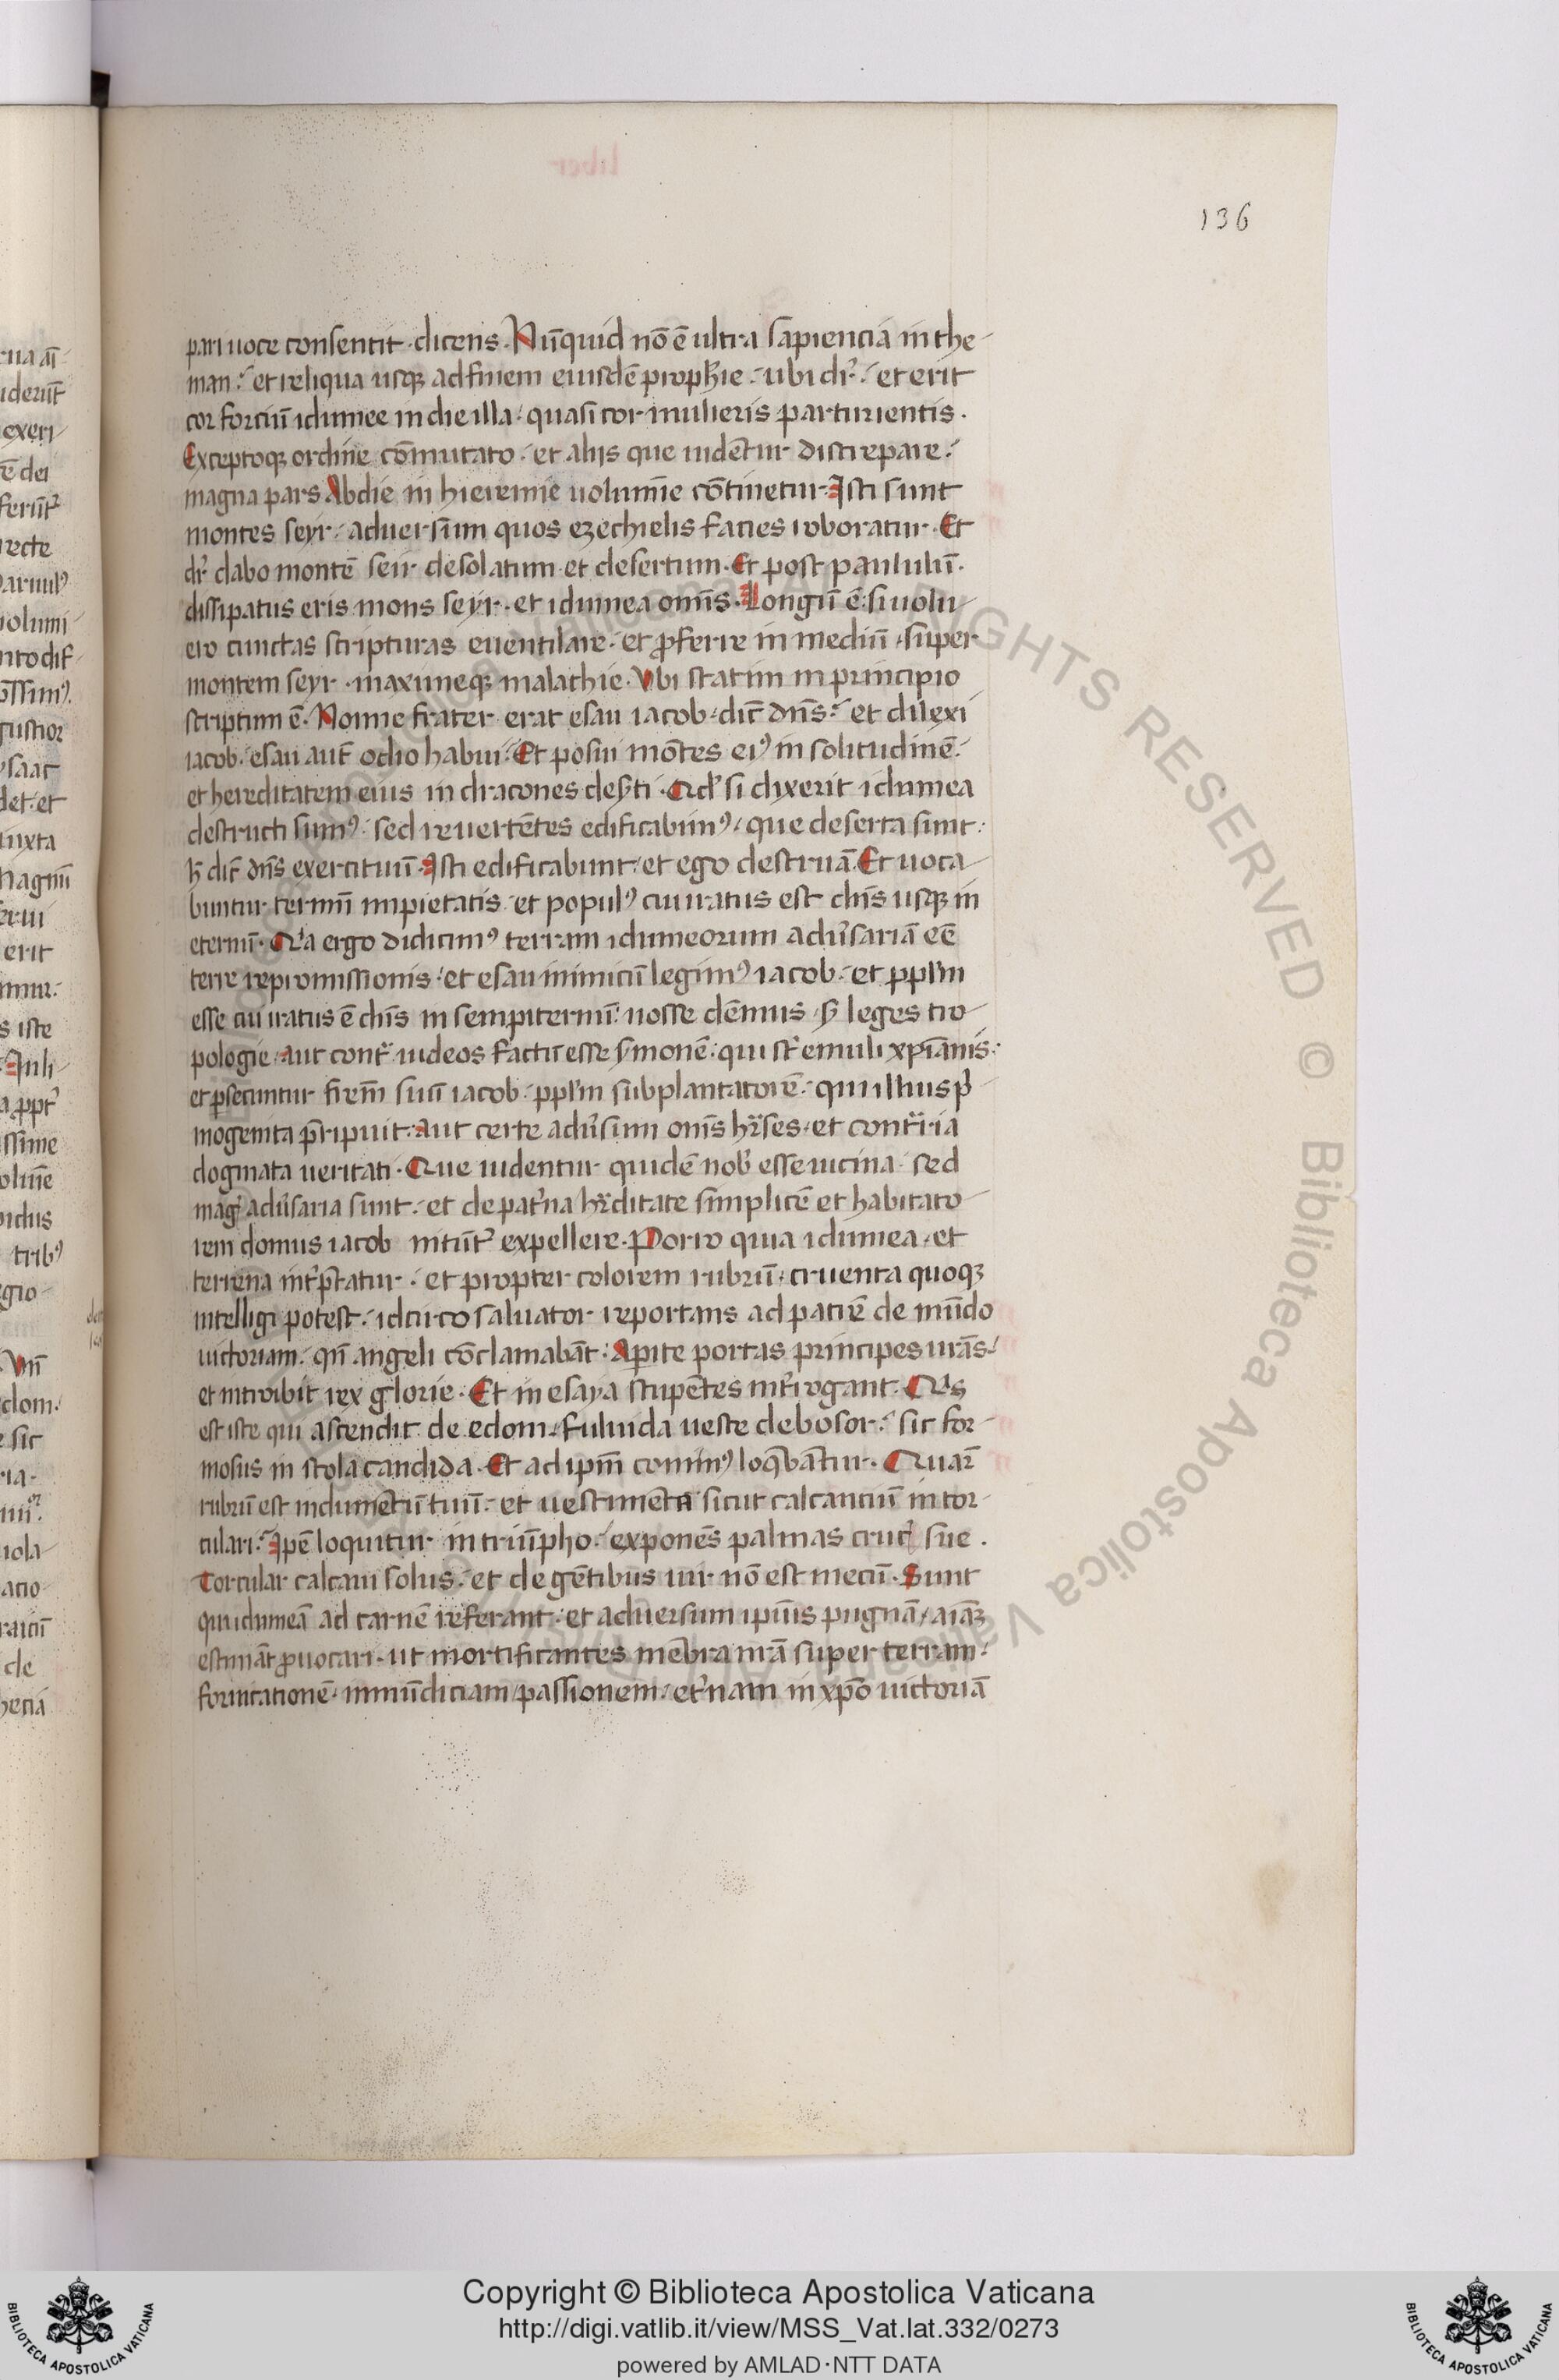 liber
136
pari uoce consentit · dicens · Nūquid nō ē ultra sapiencia in the-
man · et reliqua usqꝫ ad finem eiusdē prophīe · ubi dr̄ · et erit
cor forciū idumee in die illa · quasi cor mulieris parturientis ·
Exceptoqꝫ ordine cōmutato · et alijs que uidentur discrepare ·
magna pars Abdie in hieremie uolumīe cōtinetur · Isti sunt
montes seyr · aduersum quos ezechielis facies roboratur · Et
dr̄ dabo montē seir desolatum et desertum · Et post paululū ·
dissipatus eris mons seyr · et idumea omīs · Longū ē · si uolu-
ero cunctas scripturas euentilare · et ꝓferre in mediū · super
montem seyr · maximeqꝫ malachie · Vbi statim in principio
scriptum ē · Nonne frater erat esau iacob · dic̄ dn̄s · et dilexi
iacob · esau aut̄ odio habui · Et posui mōtes eiꝰ in solitudinē ·
et hereditatem eius in dracones deserti · Qd̓ si dixerit idumea
destructi sumꝰ · sed reuertētes edificabimꝰ · que deserta sunt ·
h̄ dic̄ dn̄s exercituū · Isti edificabunt · et ego destruā · Et uoca-
buntur termī impietatis · et populꝰ cui iratus est dn̄s usqꝫ in
eternū · Qa ergo didicimꝰ terram idumeorum adu̓sariā eē
terre repromissionis · et esau inimicū legimꝰ iacob · et ppl̄m
esse cui iratus ē dn̄s in sempiternū · nosse dēmus · s̓ leges tro-
pologie · aut cont̓ iudeos factū esse s̓monē · qui st̄ emuli xp̄ianis ·
et ꝑsecuntur fr̄em suū iacob · ppl̄m subplantatorē · qui illius p̓-
mogenita p̄ripuit · aut certe adu̓sum om̄s hr̄ses · et cont̓ria
dogmata ueritati · Que uidentur quidē nob̓ esse uicina · sed
mag̓ adu̓saria sunt · et de pat̓na hr̄ditate simplicē et habitato-
rem domus iacob nitūt̓ expellere · Porro quia idumea · et
terrena int̓p̄tatur · et propter colorem rubrū · cruenta quoqꝫ
intelligi potest · idcirco saluator reportans ad patrē de mūdo
uictoriam · qn̄ angeli cōclamabāt · Apite portas principes ur̄as ·
et introibit rex glorie · Et in esaya stupētes int̓rogant · Qis
est iste qui ascendit de edom · fuluida ueste de bosor · sic for-
mosus in stola candida · Et ad ipm̄ cominꝰ loq̄bātur · Quar̄
rubrū est indumētū tuū · et uestimēta sicut calcanciū in tor-
culari · Ipē loquitur in triūpho · exponēs palmas cruc̓ sue ·
Torcular calcaui solus · et de gētibus uir nō est mecū · Sunt
qui idumeā ad carnē referant · et aduersum ipīus pugnā · aiāꝫ
estimāt ꝓuocari · ut mortificantes mēbra nr̄a super terram ·
fornicationē · inmūdiciam · passionem · et̓nam in xp̄o uictoriā
Copyright © Biblioteca Apostolica Vaticana
http://digi.vatlib.it/view/MSS_Vat.lat.332/0273
powered by AMLAD·NTT DATA